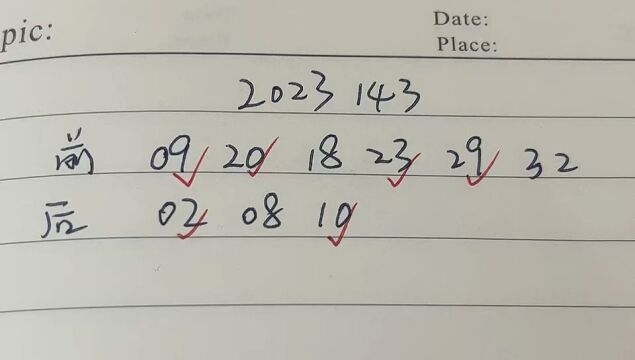 pic:
Date:
Place:
2023 143
前 09 20 18 23 29 32
后 02 08 10